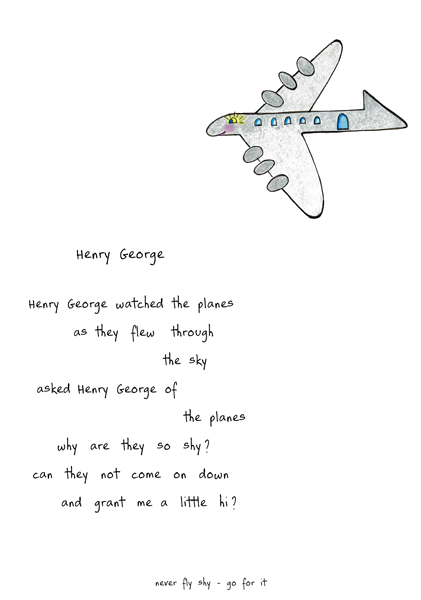 Henry George
Henry George watched the planes
as they flew through
the sky
asked Henry George of
the planes
why are they so shy?
can they not come on down
and grant me a little hi?
never fly shy - go for it